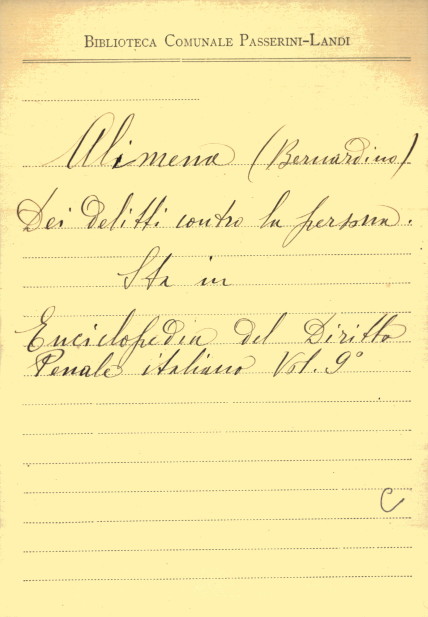 Biblioteca Comunale Passerini-Landi
Alimena (Bernardino)
Dei delitti contro la persona.
Sta in
Enciclopedia del Diritto
Penale italiano Vol. 9°
C